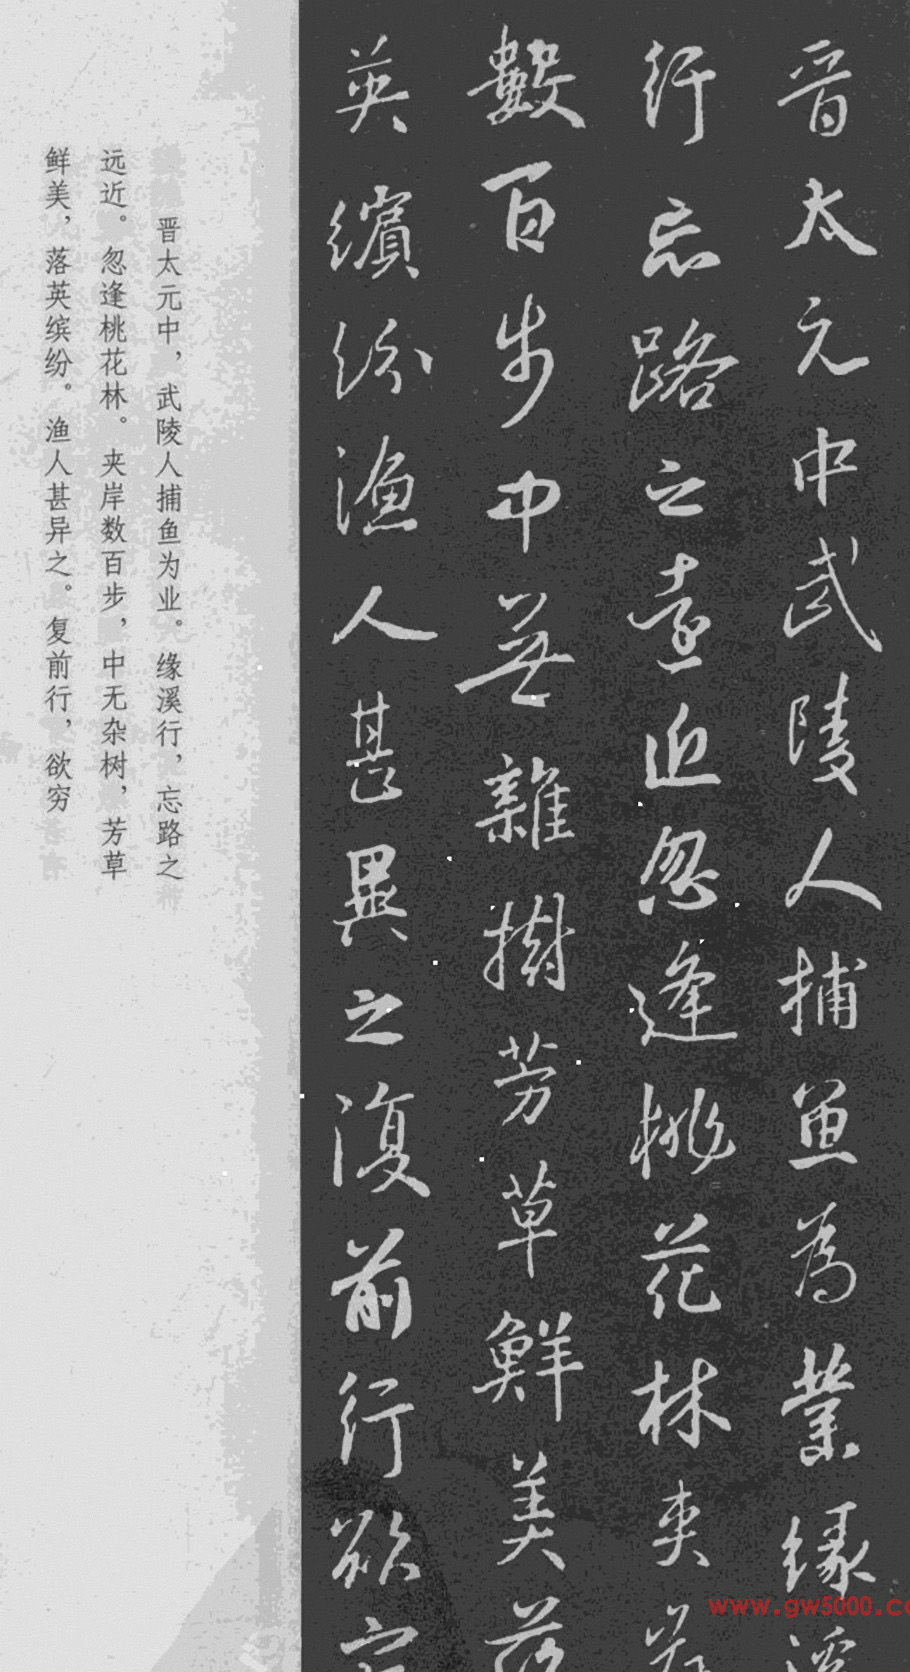 晋太元中武陵人捕鱼為業緣溪
行忘路之遠近忽逢桃花林夾岸
數百步中無雜樹芳草鮮美落
英繽紛漁人甚異之復前行欲穷
晋太元中，武陵人捕鱼为业。缘溪行，忘路之
远近。忽逢桃花林。夹岸数百步，中无杂树，芳草
鲜美，落英缤纷。渔人甚异之。复前行，欲穷
www.gw5000.co